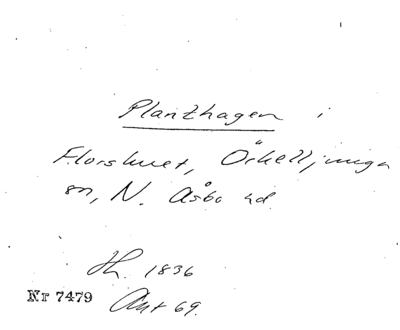 Planthagen i
Florshult, Örkelljunga
sn, N. Åsbo hd
Sk. 1836
Nr 7479 Ant 69.